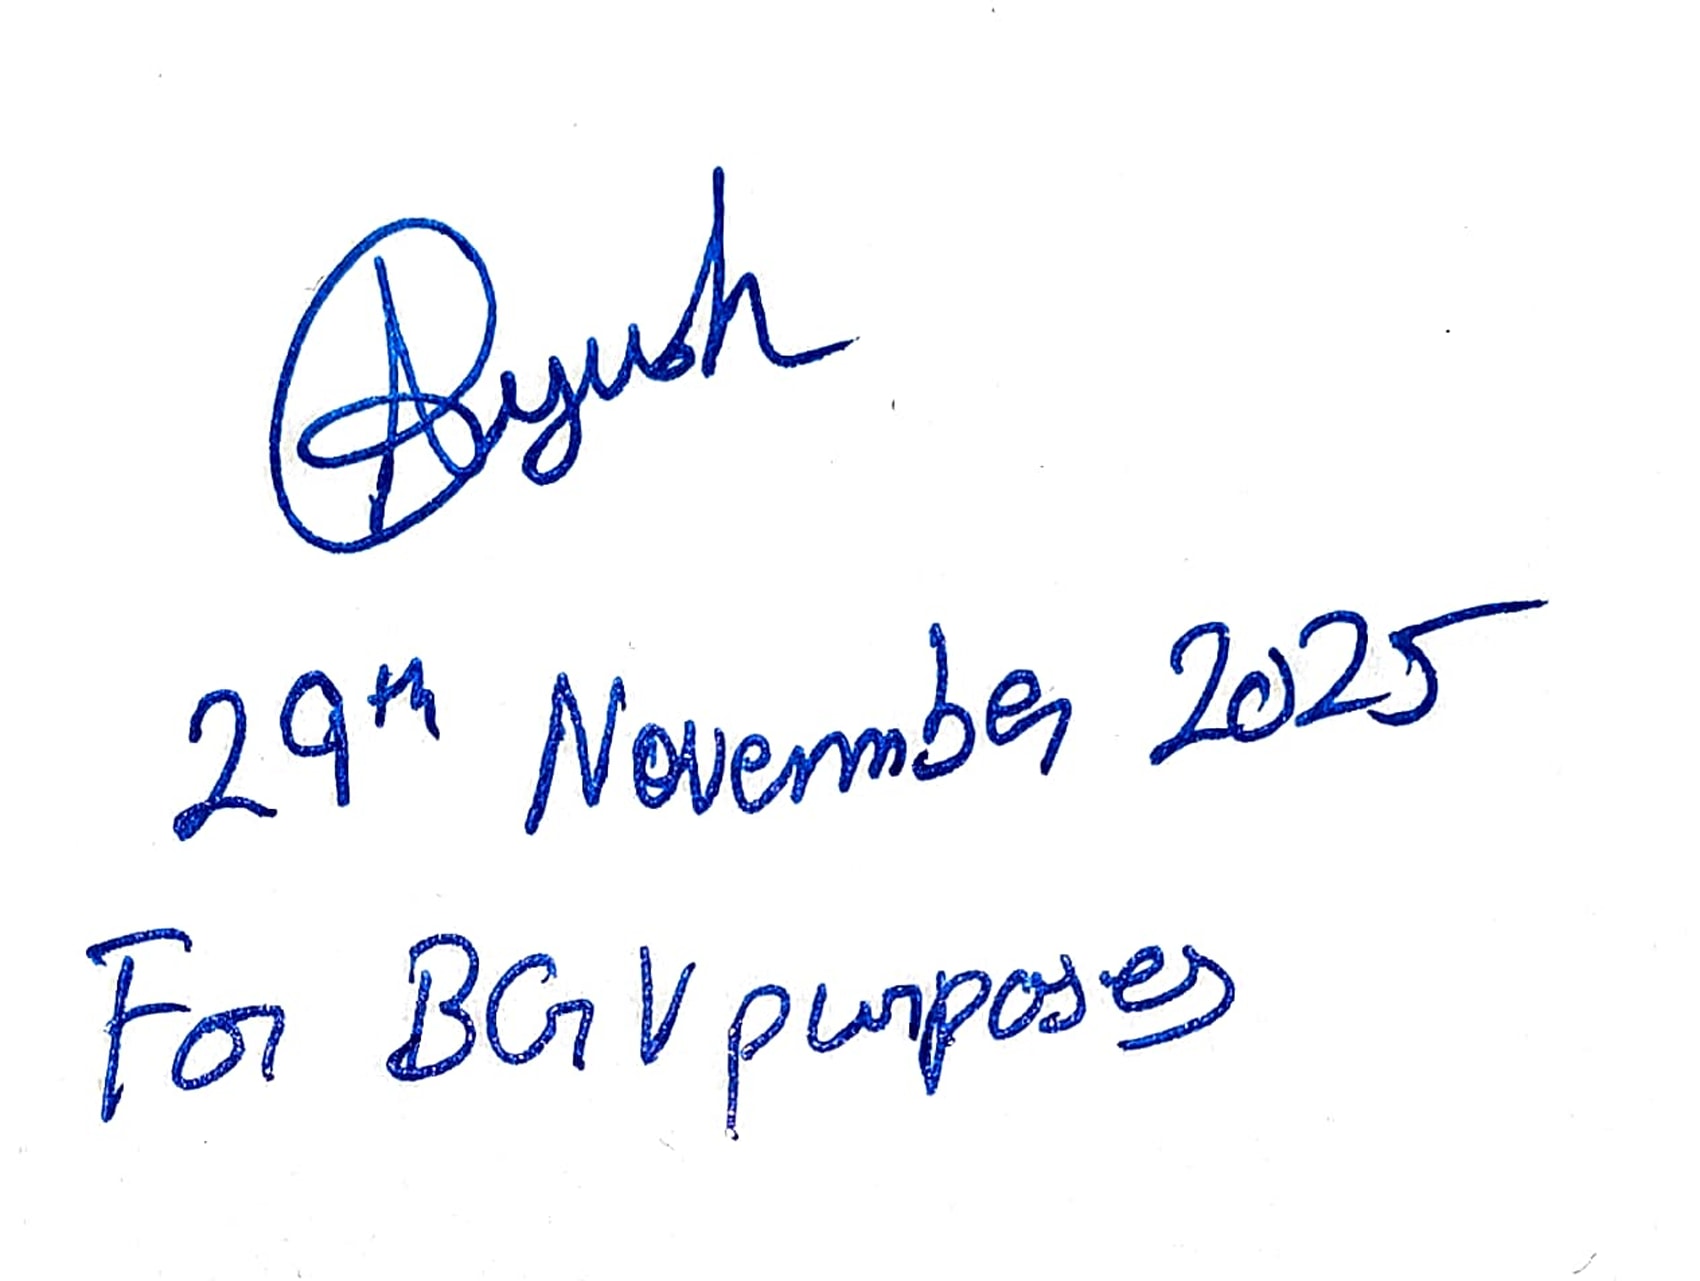 Ayush
29th November 2025
For BGV purposes